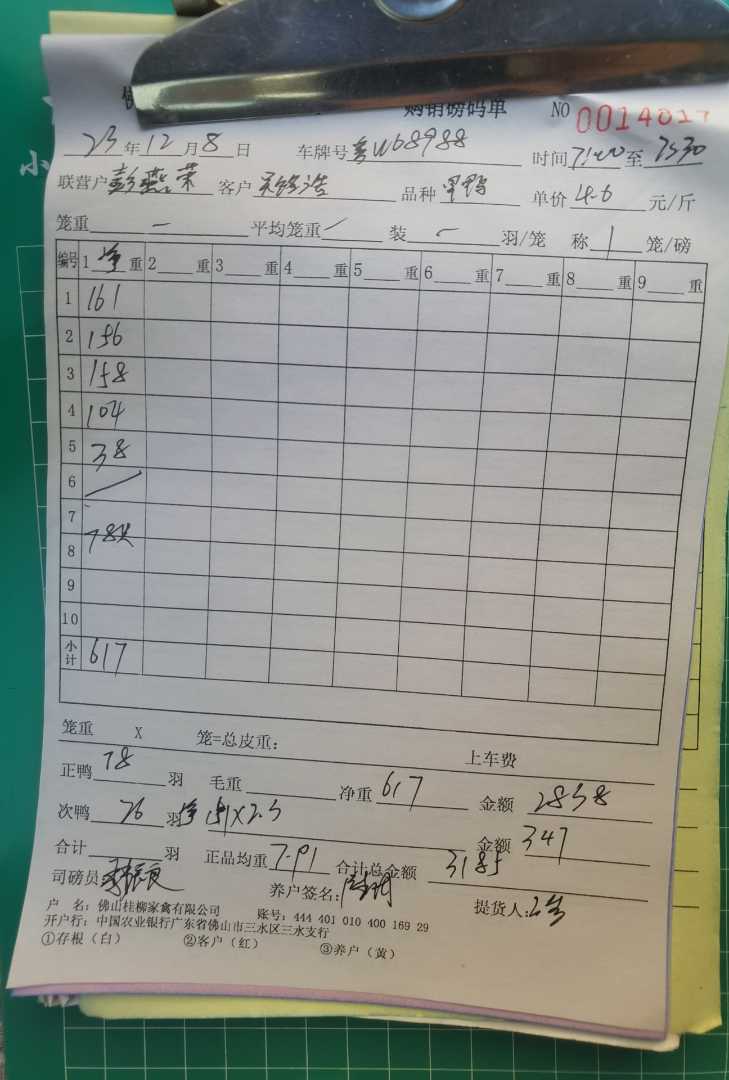 购销磅码单 NO 0014017
23年12月8日 车牌号粤W68988 时间7:00至7:30
联营户彭燕荣 客户 品种 单价4.6元/斤
笼重 一 平均笼重 装 羽/笼 称 1 笼/磅
编号 1 净 重 2 重 3 重 4 重 5 重 6 重 7 重 8 重 9 重
1 161
2 156
3 158
4 104
5 38
6
7
78只
8
9
10
小计 617
笼重 X 笼=总皮重: 上车费
正鸭 78 羽 毛重 净重 617 金额 2838
次鸭 26 羽 净 X2.3 金额 347
合计 羽 正品均重 7.91 合计总金额 3185
司磅员 养户签名: 提货人:
户 名: 佛山桂柳家禽有限公司 账号: 444 401 010 400 169 29
开户行: 中国农业银行广东省佛山市三水区三水支行
①存根(白) ②客户(红) ③养户(黄)